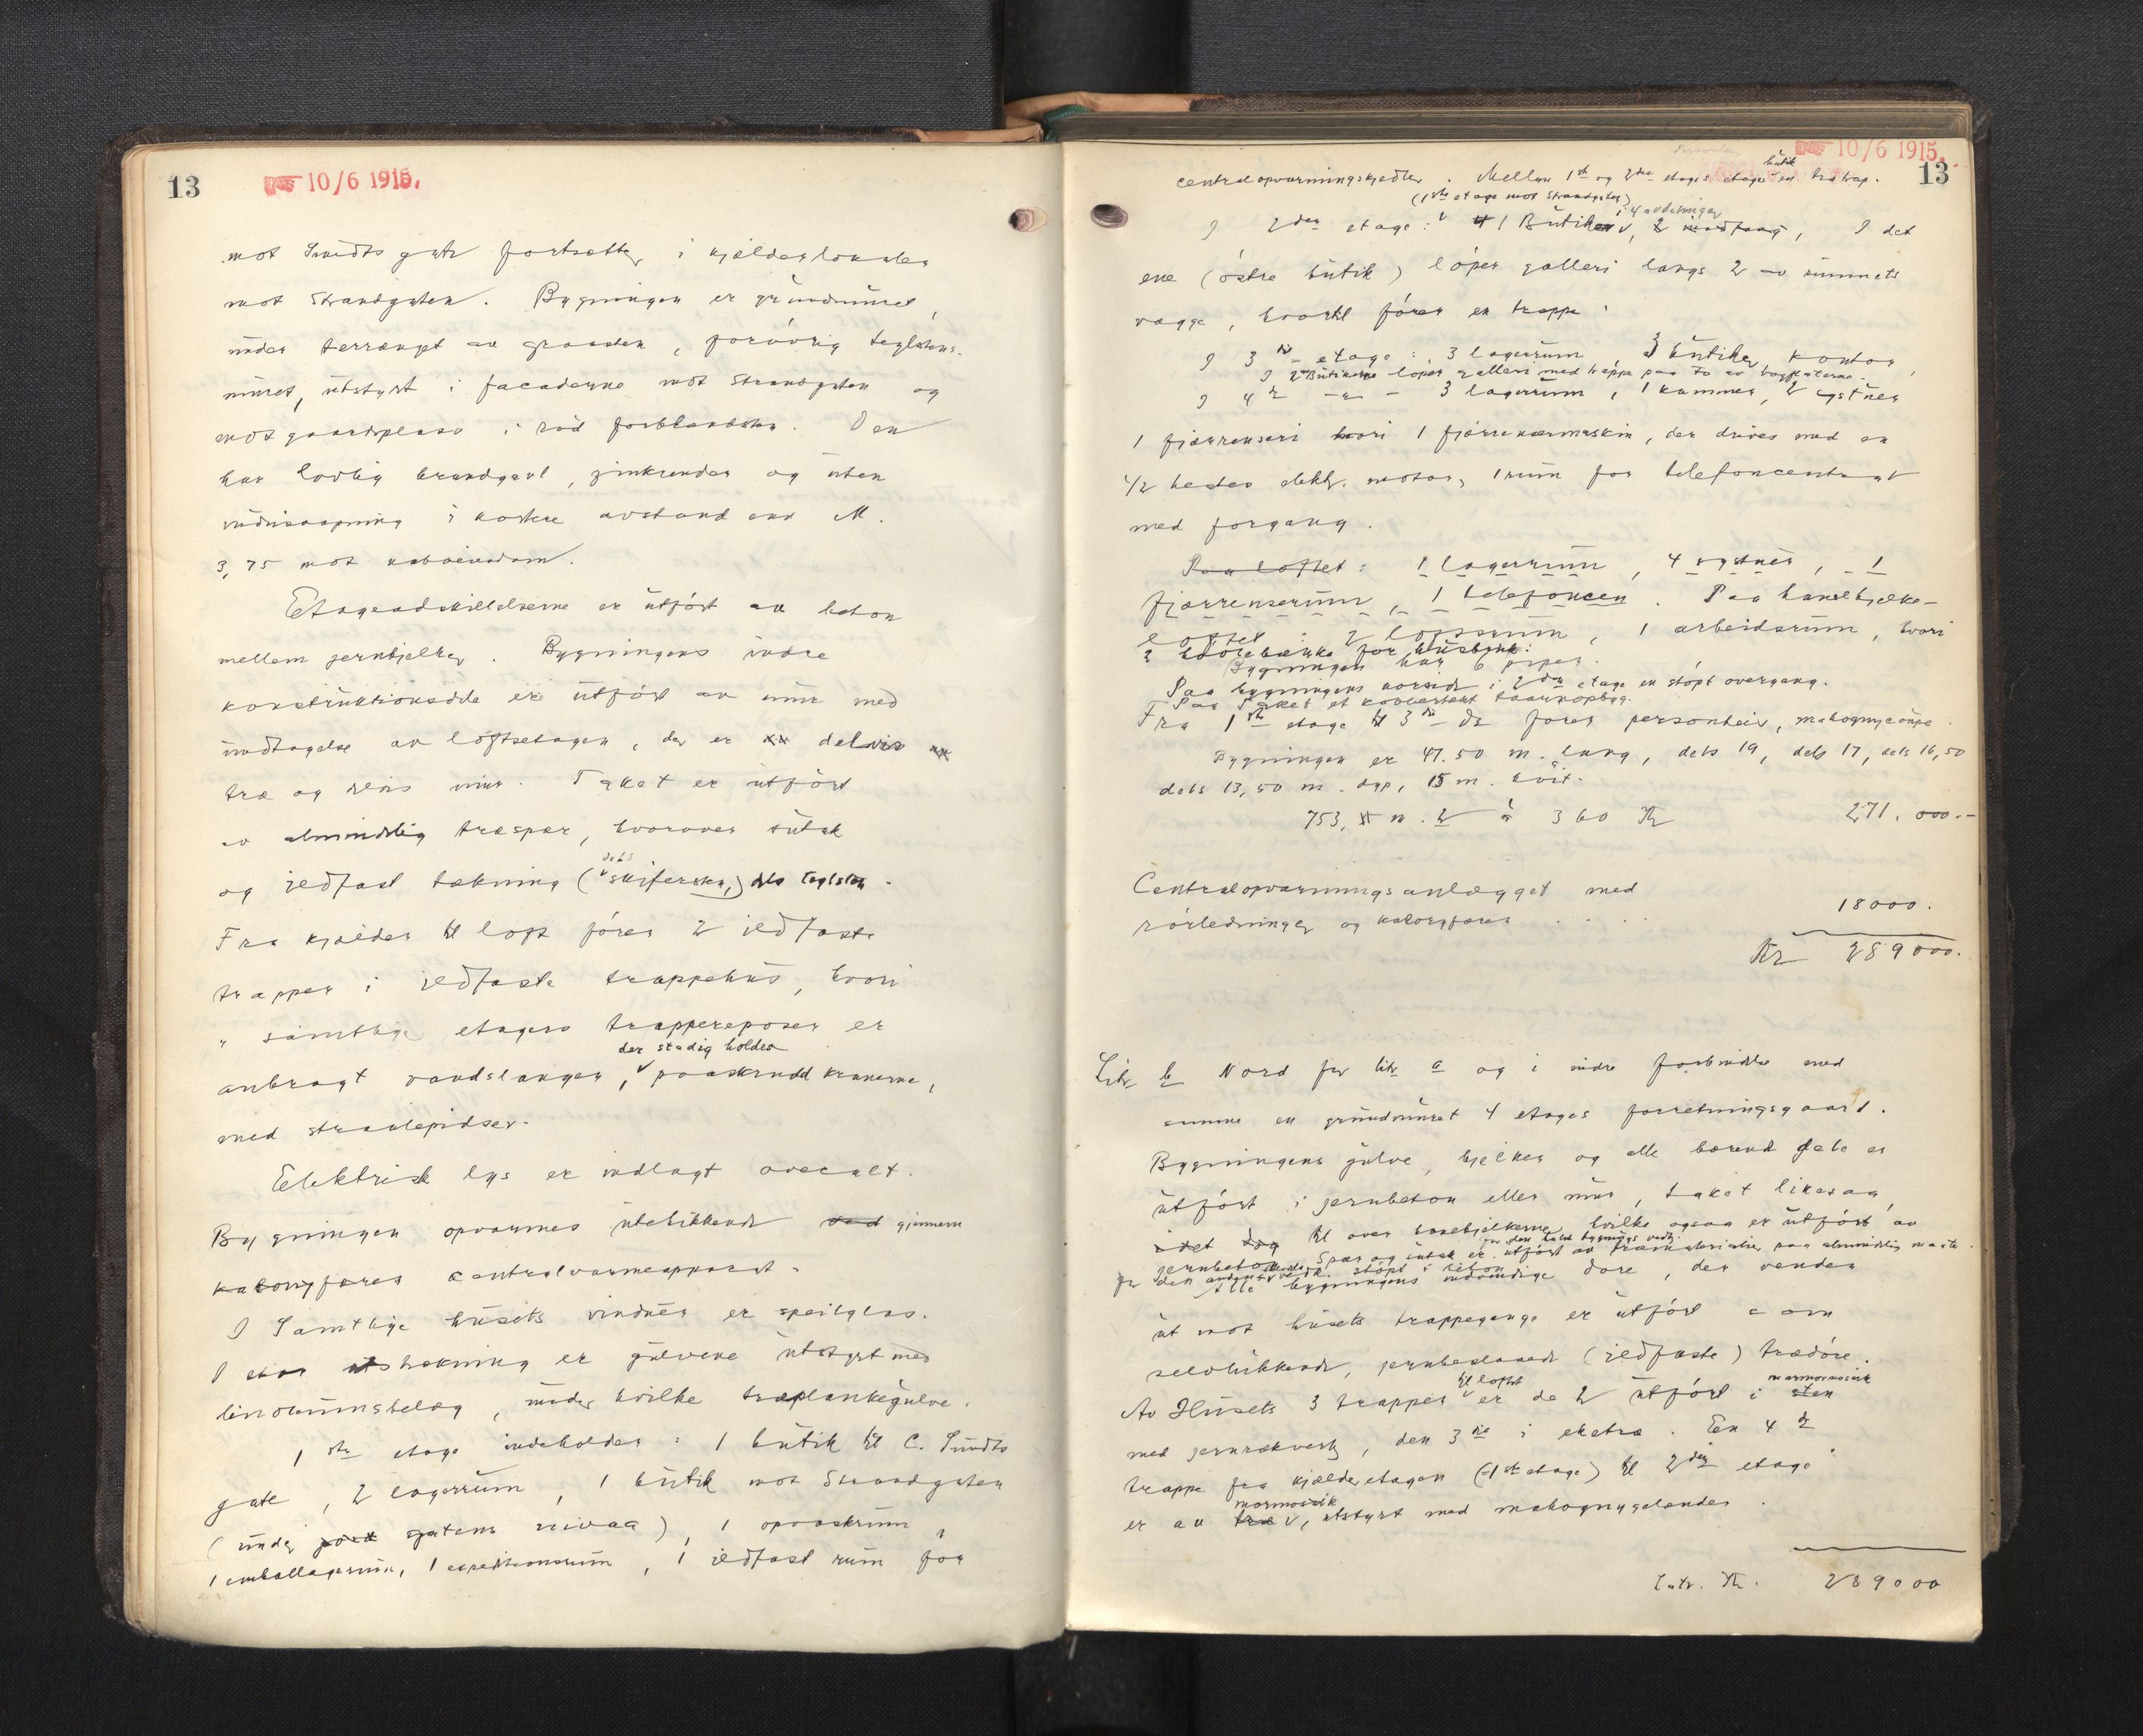 13
10/6 1915.
mot Sundts gate fortsætter i kjælderlokaler
mot Strandgaten. Bygningen er grundmuret,
under terrænget av graasten, forövrig teglstens-
muret, utstyrt i facaderne mot Strandgaten og
mot gaardsplass i röd forblandsten. Den
har lovlig brandgavl, zinkrender og uten
vindusaapning i kortere avstand end M.
3,75 mot naboeiendom.
Etageadskillelserne er utfört av beton
mellem jernbjelker. Bygningens indre
konstruktionsdele er utfört av mur med
undtagelse av loftsetagen, der er delvis
træ og delvis mur. Taket er utfört
av almindelig træspær, hvorover sutak
og ildfast tækning (dels skifersten,) dels teglsten.
Fra kjælder til loft förer 2 ildfaste
trapper i ildfaste trappehus, hvori
i samtlige etagers trappereposer er
der stadig holdes
anbragt vandslanger, paaskrudd kranerne,
med straalepidser.
Elektrisk lys er indlagt overalt.
Bygningen opvarmes utelukkende ved gjennem
kaloriferes centralvarmeapparat.
I samtlige husets vinduer er speilglas.
I stor utstrækning er gulvene utstyrt med
linoleumsbelæg, under hvilke træplankegulve.
1ste etage indeholder: 1 butik til C. Sundts
gate, 2 lagerrum, 1 butik mot Strandgaten
(under jord gatens nivaa), 1 opvaskrum,
1 emballagerum, 1 expeditionsrum, 1 ildfast rum for
10/6 1915.
13
butik
centralopvarmningskjedler. Mellem 1ste og 2den etages etages en trætrap.
(1ste etage mot Strandgaten)
i 4 avdelinger
I 2den etage: 4 1 Butiker, 2 indgang, I det
ene (östre butik) löper galleri langs 2 av rummets
vægge, hvortil förer en trappe.
I 3die etage: 3 lagerrum, 3 butiker, kontor,
I 2 Butikerne löper galleri med trappe paa to av bygflaterne.
I 4de -"- 3 lagerrum, 1 kammer, 2 systuer
1 fjærrenseri hvori 1 fjærrensemaskin, der drives med en
1/2 hestes elektr. motor, 1 rum for telefoncentral
med forgang.
Paa loftet: 1 lagerrum, 4 systuer, 1
fjærrenserum, 1 telefoncen. Paa hanebjelke-
loftet: 2 loftsrum, 1 arbeidsrum, hvori
2 hövlebænke for husbruk.
Bygningen har 6 piper.
Paa bygningens norside i 2den etage en stöpt overgang.
Paa Taket et kobbertækt taarnopbyg.
Fra 1ste etage til 3die do förer personheis, mahognycoupe.
Bygningen er 47.50 m. lang, dels 19, dels 17, dels 16,50
dels 13,50 m. dyp, 15 m. höit.
753, m. 2 à 360 Kr 271.000.-
Centralopvarmningsanlægget med
rörledninger og kaloriferer . . . . 18000.
Kr 289000.
Litr b Nord for litr a og i indre forbindelse med
samme en grundmuret 4 etages forretningsgaard.
Bygningens gulve, bjelker og alle bærende dele er
utfört i jernbeton eller mur, taket likesaa,
idet dog til over hanebjelkerne, hvilke ogsaa er utfört av
for den halve bygnings vedk.
jernbeton. Spær og sutak er utfört av træmaterialier paa almindelig maate.
for den anden vedk. stöpt i beton
Alle bygningens indvendige döre, der vender
ut mot husets trappegange er utfört som
selvlukkende, jernbeslaaede (ildfaste) trædöre.
til loftet
marmormosaik
Av Husets 3 trapper er de 2 utfört i sten
med jernrækverk, den 3die i eketræ. En 4de
trappe fra kjælderetagen (1ste etage) til 2den etage
mormosaik
er av træ, utstyrt med mahognygelænder.
Latr. Kr. 289000